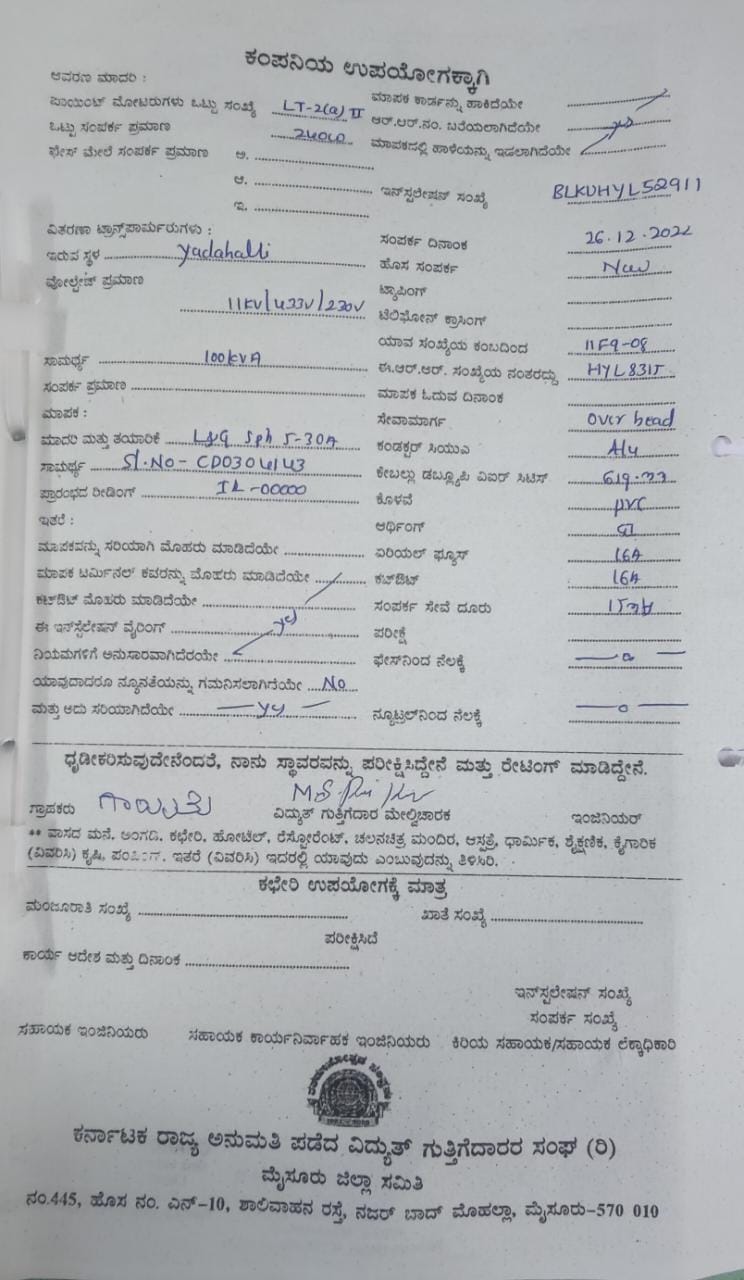 ಕಂಪನಿಯ ಉಪಯೋಗಕ್ಕಾಗಿ
ಆವರಣ ಮಾದರಿ :
ಪಾಯಿಂಟ್ ಮೋಟರುಗಳು ಒಟ್ಟು ಸಂಖ್ಯೆ LT-2(a) II
ಮಾಪಕ ಕಾರ್ಡನ್ನು ಹಾಕಿದೆಯೇ
ಒಟ್ಟು ಸಂಪರ್ಕ ಪ್ರಮಾಣ
ಆರ್.ಆರ್.ನಂ. ಬರೆಯಲಾಗಿದೆಯೇ yes
ಫೇಸ್ ಮೇಲೆ ಸಂಪರ್ಕ ಪ್ರಮಾಣ ಅ.
ಮಾಪಕದಲ್ಲಿ ಹಾಳೆಯನ್ನು ಇಡಲಾಗಿದೆಯೇ
ಆ.
ಇನ್‌ಸ್ಟಲೇಷನ್ ಸಂಖ್ಯೆ BLKUHYL52911
ಇ.
ವಿತರಣಾ ಟ್ರಾನ್ಸ್‌ಪಾರ್ಮರುಗಳು :
ಸಂಪರ್ಕ ದಿನಾಂಕ 26.12.2022
ಇರುವ ಸ್ಥಳ Yadahalli
ಹೊಸ ಸಂಪರ್ಕ New
ವೋಲ್ಟೇಜ್ ಪ್ರಮಾಣ
ಟ್ಯಾಪಿಂಗ್
11KV/433V/230V
ಟೆಲಿಫೋನ್ ಕ್ರಾಸಿಂಗ್
ಯಾವ ಸಂಖ್ಯೆಯ ಕಂಬದಿಂದ 11F9-08
ಸಾಮರ್ಥ್ಯ 100kVA
ಈ.ಆರ್.ಆರ್. ಸಂಖ್ಯೆಯ ನಂತರದ್ದು HYL8315
ಸಂಪರ್ಕ ಪ್ರಮಾಣ
ಮಾಪಕ ಓದುವ ದಿನಾಂಕ
ಮಾಪಕ :
ಸೇವಾಮಾರ್ಗ Over head
ಮಾದರಿ ಮತ್ತು ತಯಾರಿಕೆ L&G Sph 5-30A
ಕಂಡಕ್ಟರ್ ಸಿಯುಎ Alu
ಸಾಮರ್ಥ್ಯ Sl.No- CD0304143
ಕೇಬಲ್ಲು ಡಬ್ಲ್ಯೂಪಿ ವಿಐರ್ ಸಿಟಿಸ್
ಪ್ರಾರಂಭದ ರೀಡಿಂಗ್ IR-00000
ಕೊಳವೆ PVC
ಇತರೆ :
ಆರ್ಥಿಂಗ್ GI
ಮಾಪಕವನ್ನು ಸರಿಯಾಗಿ ಮೊಹರು ಮಾಡಿದೆಯೇ
ಏರಿಯಲ್ ಫ್ಯೂಸ್ 16A
ಮಾಪಕ ಟರ್ಮಿನಲ್ ಕವರನ್ನು ಮೊಹರು ಮಾಡಿದೆಯೇ
ಕಟ್‌ಔಟ್ 16A
ಕಟ್‌ಔಟ್ ಮೊಹರು ಮಾಡಿದೆಯೇ
ಸಂಪರ್ಕ ಸೇವೆ ದೂರು
ಈ ಇನ್‌ಸ್ಟಲೇಷನ್ ವೈರಿಂಗ್ yes
ಪರೀಕ್ಷೆ
ನಿಯಮಗಳಿಗೆ ಅನುಸಾರವಾಗಿದೆರಯೇ
ಫೇಸ್‌ನಿಂದ ನೆಲಕ್ಕೆ —0—
ಯಾವುದಾದರೂ ನ್ಯೂನತೆಯನ್ನು ಗಮನಿಸಲಾಗಿದೆಯೇ No
ಮತ್ತು ಅದು ಸರಿಯಾಗಿದೆಯೇ — yes —
ನ್ಯೂಟ್ರಲ್‌ನಿಂದ ನೆಲಕ್ಕೆ —0—
ಧೃಡೀಕರಿಸುವುದೇನೆಂದತೆ, ನಾನು ಸ್ಥಾವರವನ್ನು ಪರೀಕ್ಷಿಸಿದ್ದೇನೆ ಮತ್ತು ರೇಟಿಂಗ್ ಮಾಡಿದ್ದೇನೆ.
ಗ್ರಾಹಕರು
ವಿದ್ಯುತ್ ಗುತ್ತಿಗೆದಾರ ಮೇಲ್ವಿಚಾರಕ
ಇಂಜಿನಿಯರ್
** ವಾಸದ ಮನೆ, ಅಂಗಡಿ, ಕಛೇರಿ, ಹೋಟೆಲ್, ರೆಸ್ಟೋರೆಂಟ್, ಚಲನಚಿತ್ರ ಮಂದಿರ, ಆಸ್ಪತ್ರೆ, ಧಾರ್ಮಿಕ, ಶೈಕ್ಷಣಿಕ, ಕೈಗಾರಿಕ
(ವಿವರಿಸಿ) ಕೃಷಿ, ಪಂಪಿಂಗ್, ಇತರೆ (ವಿವರಿಸಿ) ಇದರಲ್ಲಿ ಯಾವುದು ಎಂಬುವುದನ್ನು ತಿಳಿಸಿರಿ.
ಕಛೇರಿ ಉಪಯೋಗಕ್ಕೆ ಮಾತ್ರ
ಮಂಜೂರಾತಿ ಸಂಖ್ಯೆ
ಖಾತೆ ಸಂಖ್ಯೆ
ಪರೀಕ್ಷಿಸಿದೆ
ಕಾರ್ಯ ಆದೇಶ ಮತ್ತು ದಿನಾಂಕ
ಇನ್‌ಸ್ಪಲೇಷನ್ ಸಂಖ್ಯೆ
ಸಂಪರ್ಕ ಸಂಖ್ಯೆ
ಸಹಾಯಕ ಇಂಜಿನಿಯರು
ಸಹಾಯಕ ಕಾರ್ಯನಿರ್ವಾಹಕ ಇಂಜಿನಿಯರು
ಕಿರಿಯ ಸಹಾಯಕ/ಸಹಾಯಕ ಲೆಕ್ಕಾಧಿಕಾರಿ
ಕರ್ನಾಟಕ ರಾಜ್ಯ ಅನುಮತಿ ಪಡೆದ ವಿದ್ಯುತ್ ಗುತ್ತಿಗೆದಾರರ ಸಂಘ (ರಿ)
ಮೈಸೂರು ಜಿಲ್ಲಾ ಸಮಿತಿ
ನಂ.445, ಹೊಸ ನಂ. ಎನ್-10, ಶಾಲಿವಾಹನ ರಸ್ತೆ, ನಜರ್ ಬಾದ್ ಮೊಹಲ್ಲಾ, ಮೈಸೂರು-570 010